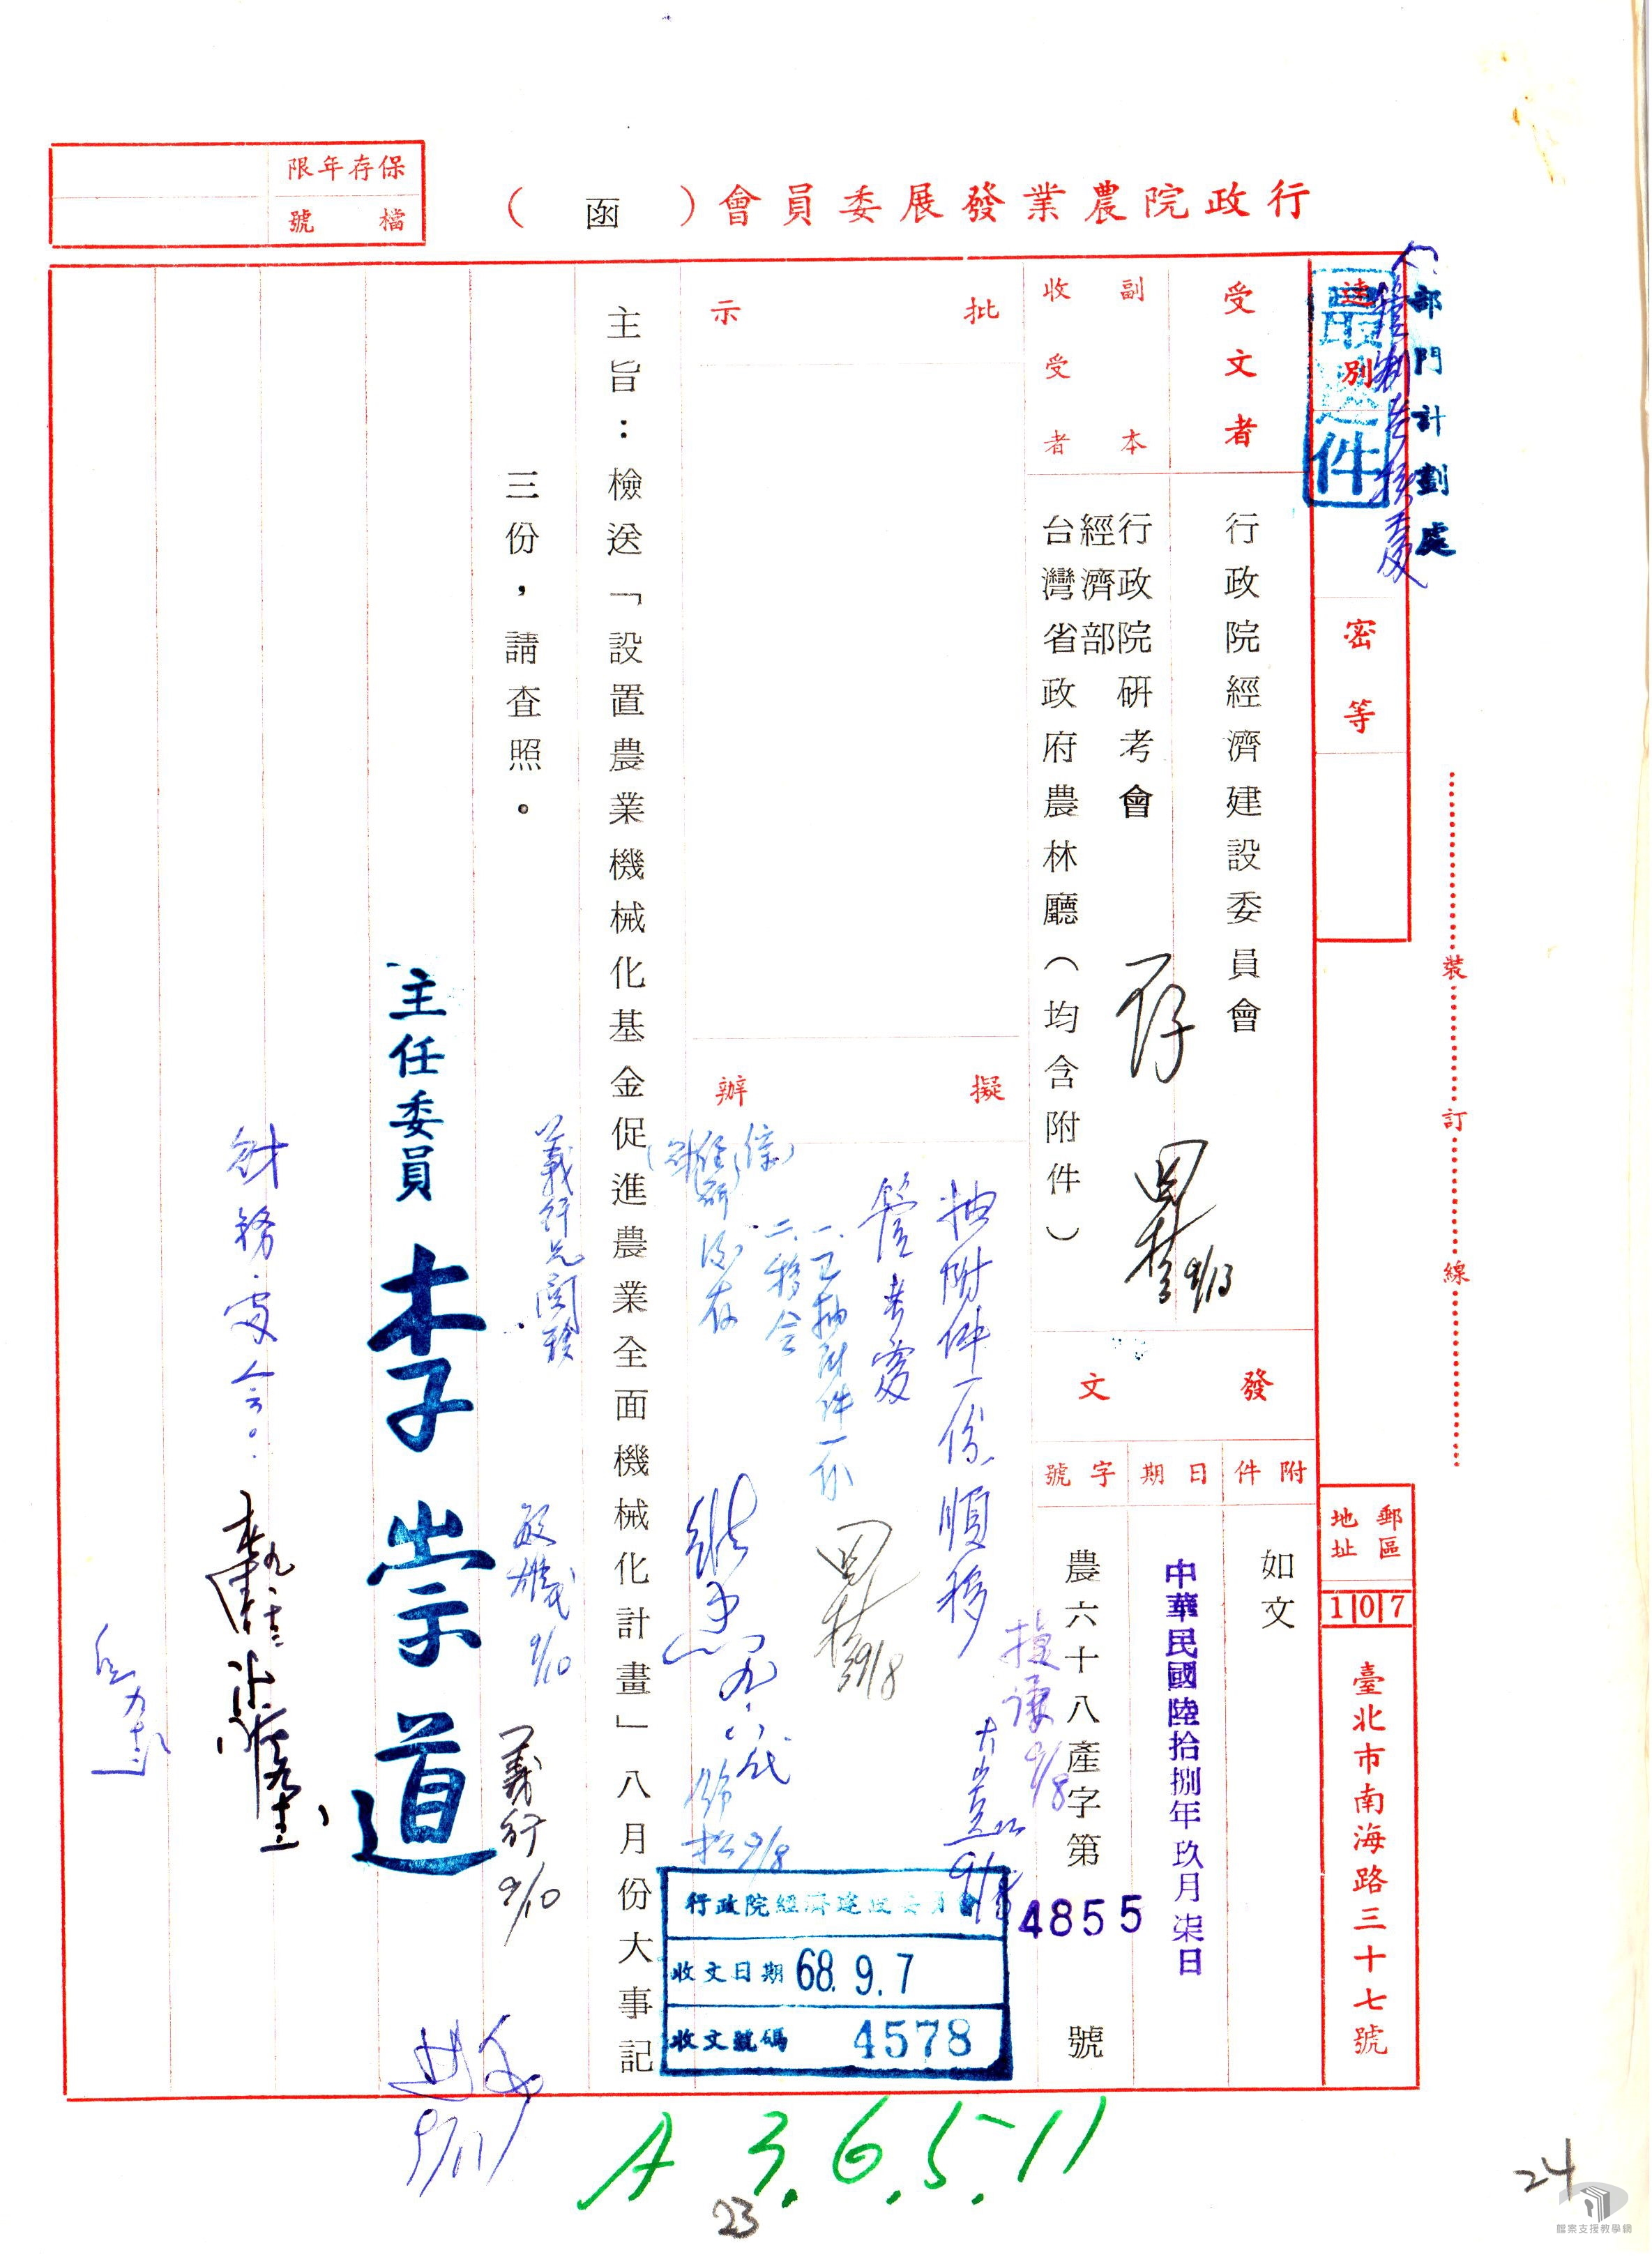 行政院農業發展委員會（函）
保存年限
檔號
部門計劃處
管制考核處
速別
最速件
密等
郵區
地址
107
臺北市南海路三十七號
裝訂線
受文者
行政院經濟建設委員會
副本
收受者
行政院研考會
經濟部
台灣省政府農林廳（均含附件）
存
9/13
發文
附件
如文
日期
中華民國陸拾捌年玖月柒日
字號
農六十八產字第4855號
批示
擬辦
抽附件一份、順移
管考處
一、已抽附件一份
二、移會
9/8
行政院經濟建設委員會
收文日期 68.9.7
收文號碼 4578
主旨：檢送「設置農業機械化基金促進農業全面機械化計畫」八月份大事記
三份，請查照。
9/10
義行 9/10
主任委員 李崇道
9/11
財務處會。
A 3.6.5.11
23
24
檔案支援教學網